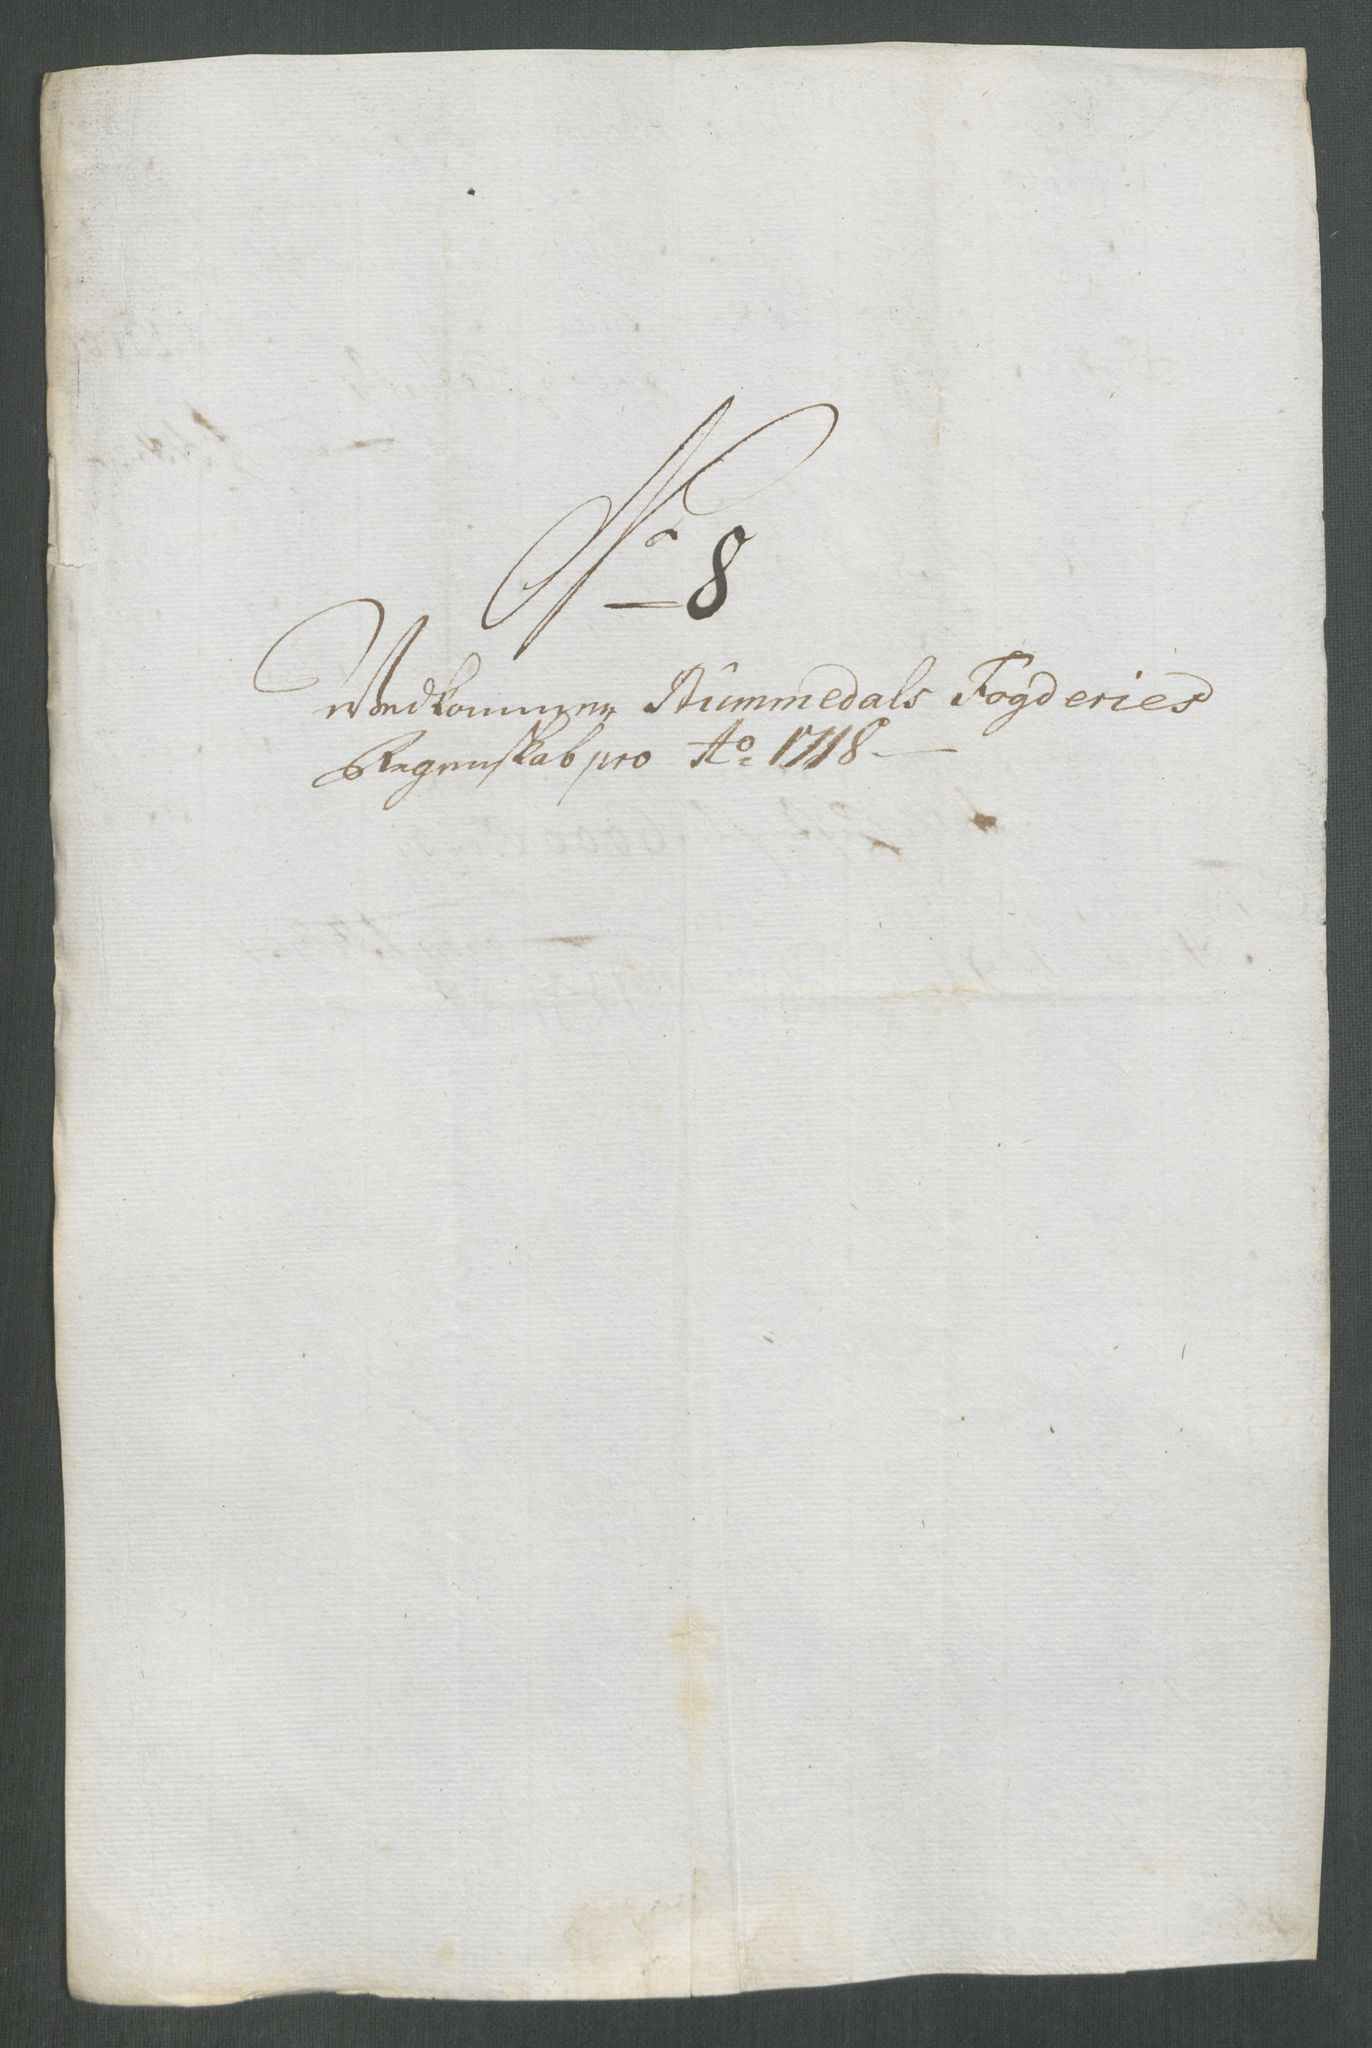 No 8
Vedkommer Nummedals Fogderies
Regenskab pro Ao 1718